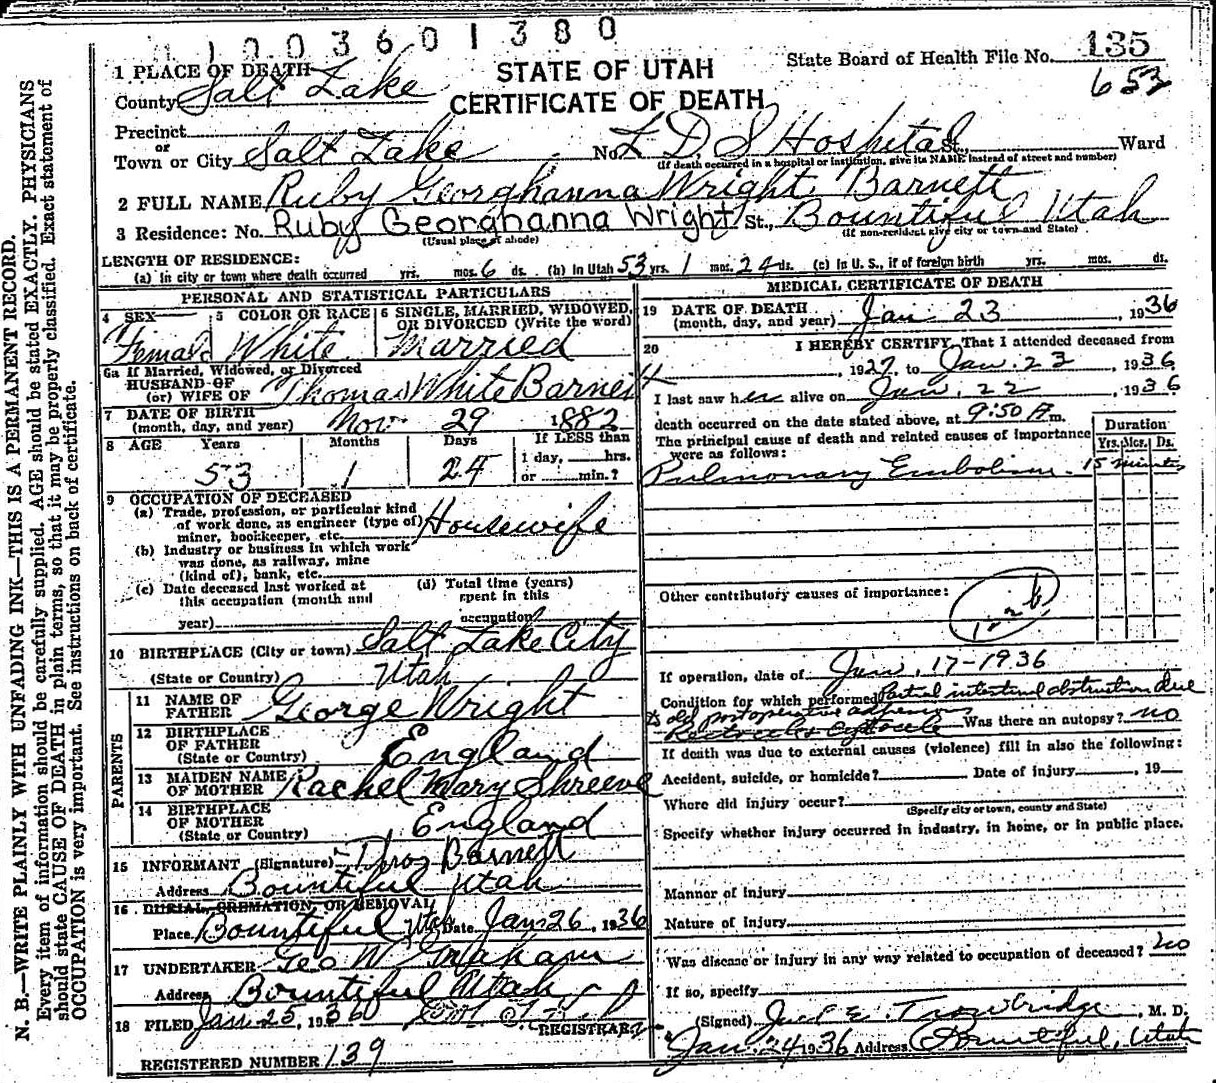 1 1 0 0 3 6 0 1 3 8 0
State Board of Health File No. 135
653
STATE OF UTAH
CERTIFICATE OF DEATH
1 PLACE OF DEATH
County Salt Lake
Precinct
or
Town or City Salt Lake No. L D S Hospital St., Ward
(If death occurred in a hospital or institution, give its NAME instead of street and number)
2 FULL NAME Ruby Georghanna Wright Barnett
3 Residence: No. Ruby Georghanna Wright St., Bountiful Utah
(Usual place of abode) (If non-resident give city or town and State)
LENGTH OF RESIDENCE:
(a) In city or town where death occurred yrs. mos. 6 ds. (b) In Utah 53 yrs. 1 mos. 24 ds. (c) In U. S., if of foreign birth yrs. mos. ds.
PERSONAL AND STATISTICAL PARTICULARS
4 SEX 5 COLOR OR RACE 6 SINGLE, MARRIED, WIDOWED, OR DIVORCED (Write the word)
Female White Married
6a If Married, Widowed, or Divorced
HUSBAND OF
(or) WIFE OF Thomas White Barnett
7 DATE OF BIRTH
(month, day, and year) Nov. 29 1882
8 AGE Years Months Days If LESS than
1 day, hrs.
53 1 24 or min.?
9 OCCUPATION OF DECEASED
(a) Trade, profession, or particular kind
of work done, as engineer (type of)
miner, bookkeeper, etc. Housewife
(b) Industry or business in which work
was done, as railway, mine
(kind of), bank, etc.
(c) Date deceased last worked at
this occupation (month and
year)
(d) Total time (years)
spent in this
occupation
10 BIRTHPLACE (City or town) Salt Lake City
(State or Country) Utah
PARENTS
11 NAME OF
FATHER George Wright
12 BIRTHPLACE
OF FATHER
(State or Country) England
13 MAIDEN NAME
OF MOTHER Rachel Mary Shreeve
14 BIRTHPLACE
OF MOTHER
(State or Country) England
15 INFORMANT (Signature) Thos Barnett
Address Bountiful Utah
16 BURIAL, CREMATION, OR REMOVAL
Place Bountiful Utah Date Jan 26, 1936
17 UNDERTAKER Geo W Graham
Address Bountiful Utah
18 FILED Jan 25, 1936
REGISTRAR
REGISTERED NUMBER 139
MEDICAL CERTIFICATE OF DEATH
19 DATE OF DEATH
(month, day, and year) Jan 23, 1936
20 I HEREBY CERTIFY, That I attended deceased from
, 1927, to Jan. 23, 1936
I last saw her alive on Jan. 22, 1936
death occurred on the date stated above, at 9:50 A m.
The principal cause of death and related causes of importance
were as follows:
Duration
Yrs. Mos. Ds.
Pulmonary Embolism 15 minutes
Other contributory causes of importance:
If operation, date of Jan. 17-1936
Condition for which performed Partial intestinal obstruction due
to old postoperative adhesions
Was there an autopsy? no
If death was due to external causes (violence) fill in also the following:
Accident, suicide, or homicide? Date of injury , 19
Where did injury occur?
(Specify city or town, county and State)
Specify whether injury occurred in industry, in home, or in public place.
Manner of injury
Nature of injury
Was disease or injury in any way related to occupation of deceased? no
If so, specify
(Signed) E. Trowbridge, M. D.
Jan. 24 1936 Address Bountiful, Utah
N. B.—WRITE PLAINLY WITH UNFADING INK—THIS IS A PERMANENT RECORD.
Every item of information should be carefully supplied. AGE should be stated EXACTLY. PHYSICIANS
should state CAUSE OF DEATH in plain terms, so that it may be properly classified. Exact statement of
OCCUPATION is very important. See instructions on back of certificate.